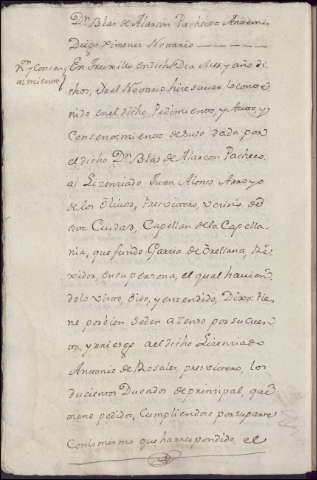 Dn. Blas de Alarcon Pacheco Antemi
Diego Ximenez Navarro
En Truxillo en dicho Dia Mes y año di
chos, Yo el Notario hice saver lo conte
nido en el dicho Pedimiento, y Auto y
Consentimiento de suso dada por
el dicho Dn. Blas de Alarcon Pacheco,
al Lizenziado Juan Alonso Arroyo
de los Olivos, Presvitero vecino de
sta Ciudad, Capellan de la Capella
nia, que fundo Garzia de Orellana, Re
xidor, en su persona, el qual havien
dolo vi oido, y entendido, Dixo: tie
ne por bien se den a zenso por su cuen
to, y riesgo al dicho Lizenziado
Antonio de Rosales, presvitero, los
ducientos Ducados de prenzipal, que
mono pedidos, Cumpliendose por su parte
Con lo mesmo que ha respondido el